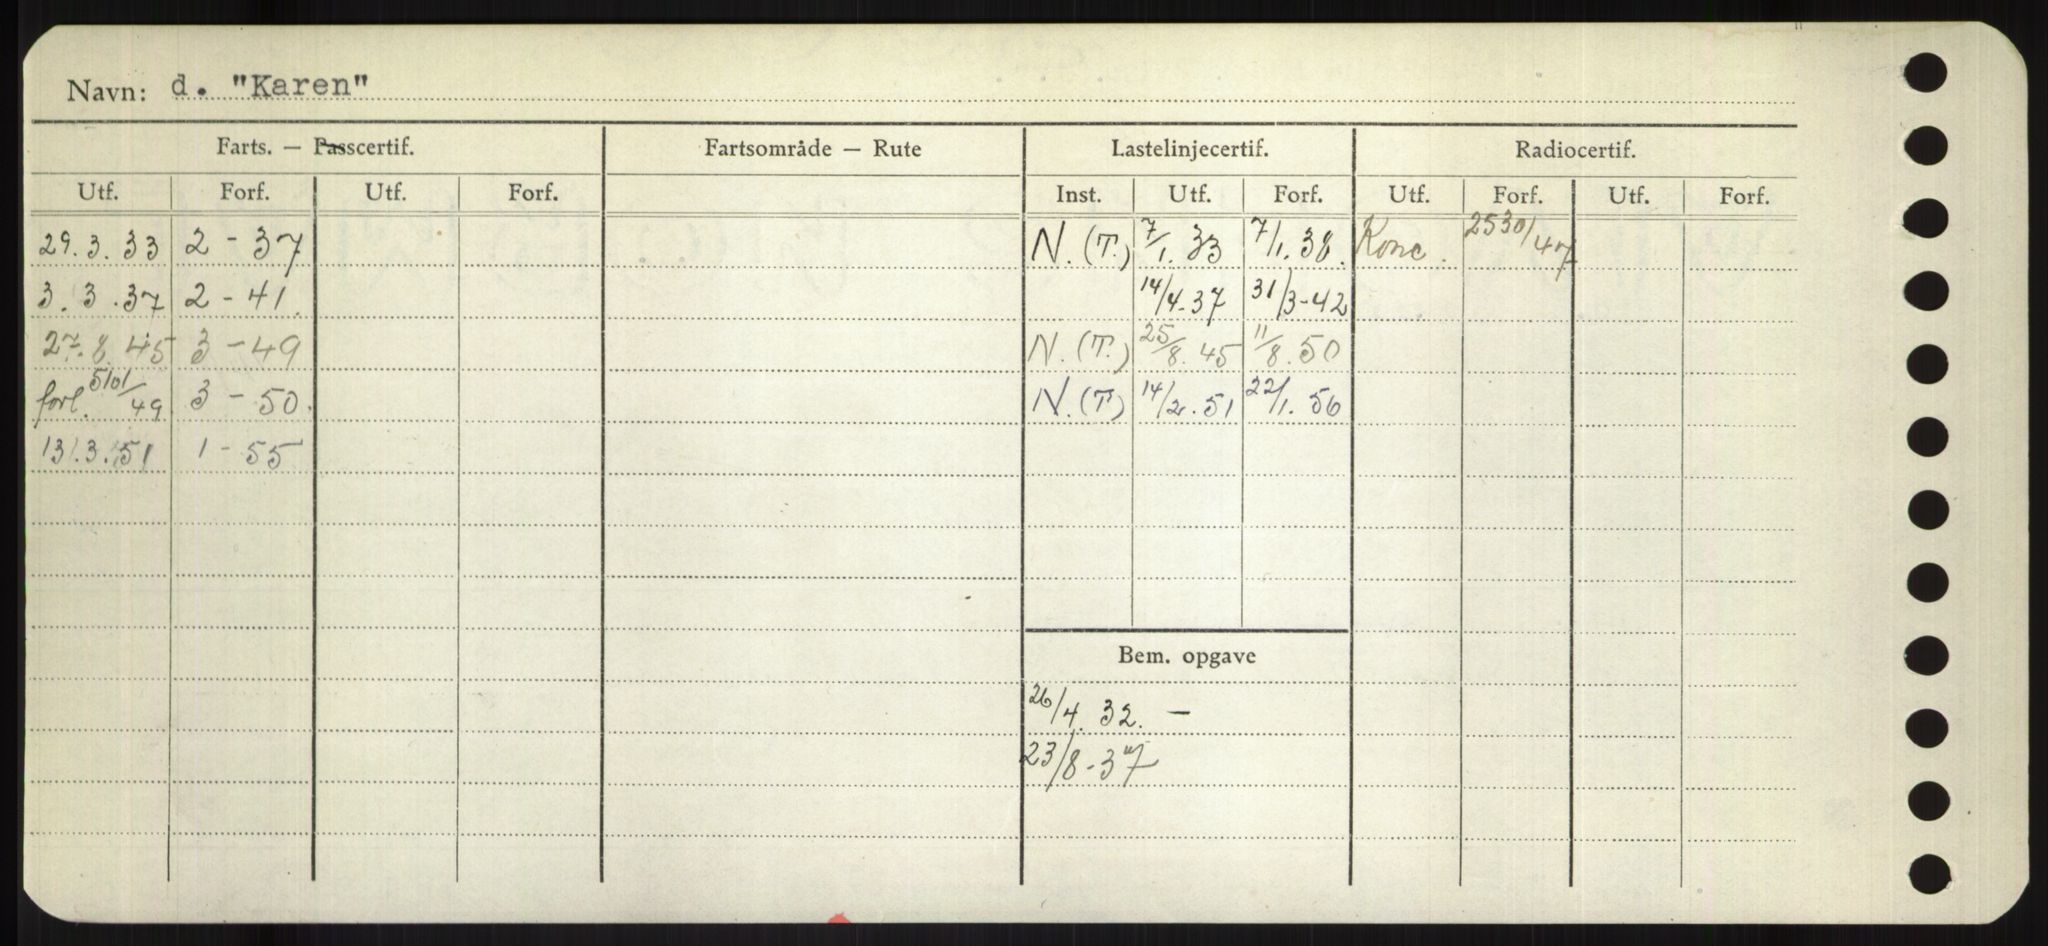 Navn: d. "Karen"
Farts. — Passcertif. Fartsområde — Rute Lastelinjecertif. Radiocertif.
Utf. Forf. Utf. Forf. Inst. Utf. Forf. Utf. Forf. Utf. Forf.
29.3.33 2 - 37 N. (T.) 7/1. 33 7/1. 38. Konc. 2530/47
3.3.37 2 - 41. 14/4-37 31/3-42
27.8.45 3 - 49 N. (T.) 25/8. 45 11/8. 50
forl. 5101/49 3 - 50. N. (T) 14/2. 51 22/1. 56
13.3.51 1 - 55
Bem. opgave
26/4. 32. —
23/8-37